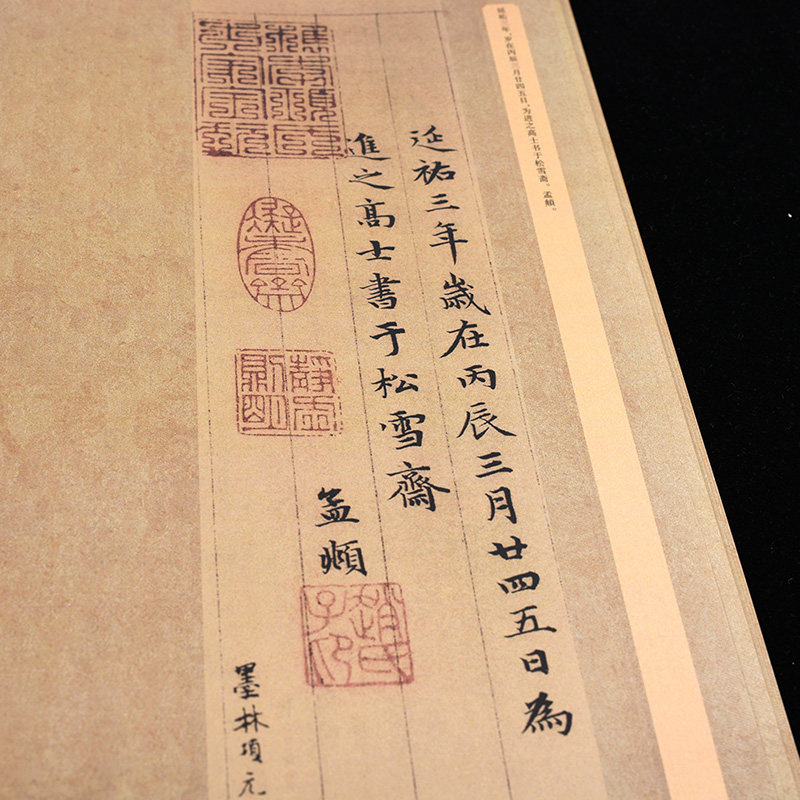 延祐三年，岁在丙辰三月廿四五日，为进之高士书于松雪斋。孟頫。
延祐三年歲在丙辰三月廿四五日為
進之高士書于松雪齋
孟頫
趙氏子印
墨林項元